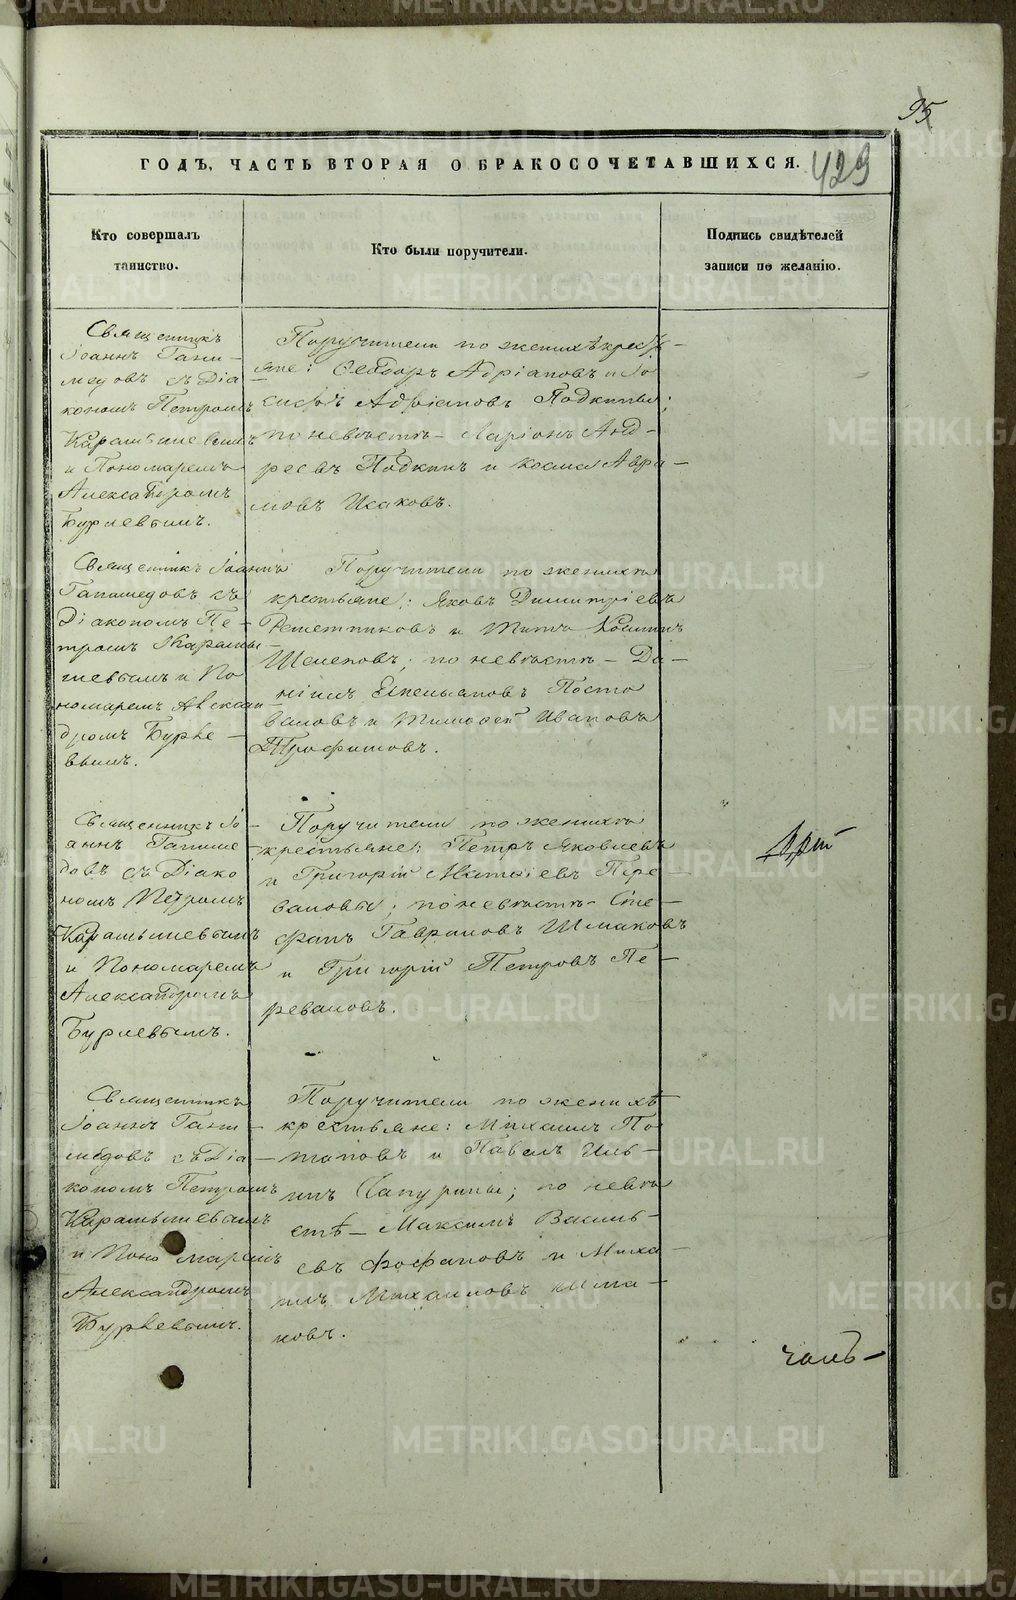 95
429
ГОДЪ, ЧАСТЬ ВТОРАЯ О БРАКОСОЧЕТАВШИХСЯ.
Кто совершалъ
таинство.
Кто были поручители.
Подпись свидѣтелей
записи по желанію.
Священникъ
Іоаннъ Гани-
медовъ съ Діа
кономъ Петромъ
Карамышевымъ
и Пономаремъ
Александромъ
Бурлевымъ.
Поручители по женихѣ кресть-
яне: Ѳеодоръ Адріановъ и Іо
сифъ Адріановъ Подкины;
по невѣстѣ - Ларіонъ Анд-
реевъ Подкинъ и Косма Авра-
мовъ Исаковъ.
Священникъ Іоаннъ
Ганимедовъ съ
Діакономъ Пе-
тромъ Карамы-
шевымъ и По
номаремъ Алексан-
дромъ Бурле-
вымъ.
Поручители по женихѣ
крестьяне: Яковъ Димитріевъ
Решетниковъ и Титъ Косминъ
Шелеповъ; по невѣстѣ - Да-
ніилъ Емельяновъ Посто
валовъ и Тимофей Ивановъ
Трофимовъ.
Священникъ Іо-
аннъ Ганиме-
довъ съ Діако
номъ Петромъ
Карамышевымъ
и Пономаремъ
Александромъ
Бурлевымъ.
Поручители по женихѣ
крестьяне: Петръ Яковлевъ
и Григорій Матвіевъ Пере-
валовы; по невѣстѣ - Сте-
фанъ Гавриловъ Шмаковъ
и Григорій Петровъ Пе-
реваловъ.
Священникъ
Іоаннъ Гани-
медовъ съ Діа-
кономъ Петромъ
Карамышевымъ
и Пономаремъ
Александромъ
Бурлевымъ.
Поручители по женихѣ
крестьяне: Михаилъ По
таповъ и Павелъ Иль-
инъ Сапурины; по невѣ
стѣ - Максимъ Василь-
евъ Фофановъ и Миха-
илъ Михаиловъ Кима-
ковъ.
METRIKI.GASO-URAL.RU